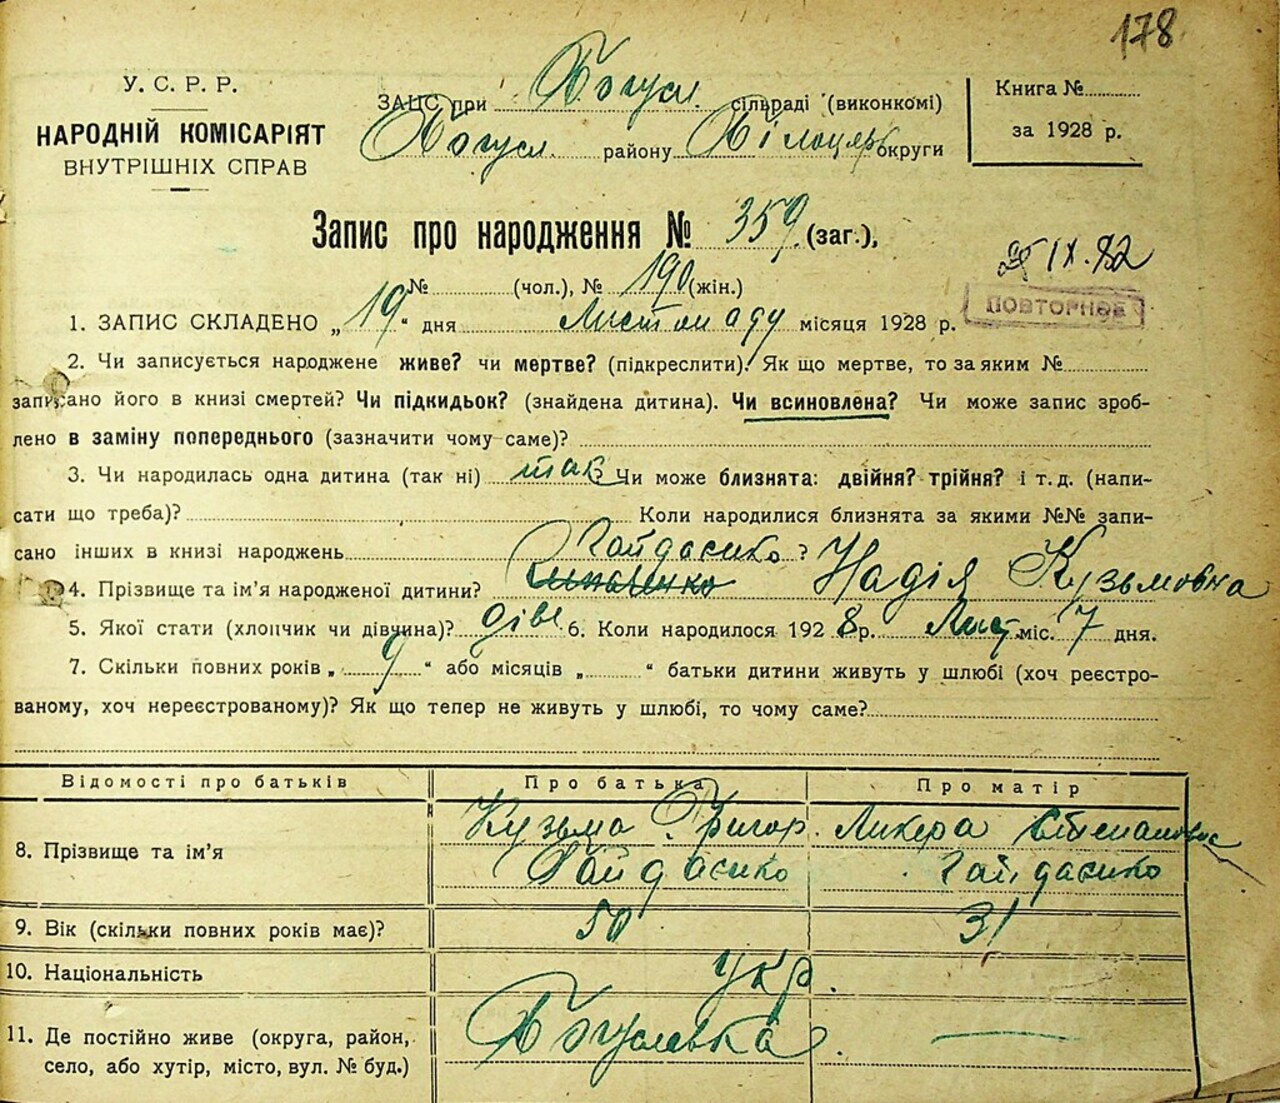 178
У. С. Р. Р.
НАРОДНІЙ КОМІСАРІЯТ
ВНУТРІШНІХ СПРАВ
ЗАЦС при Богусл. сільраді (виконкомі)
Богусл. району Білоцерк округи
Книга №
за 1928 р.
Запис про народження № 359 (заг.),
№ (чол.), № 190 (жін.)
IX.82
ПОВТОРНОЕ
1. ЗАПИС СКЛАДЕНО „19“ дня Листопаду місяця 1928 р.
2. Чи записується народжене живе? чи мертве? (підкреслити). Як що мертве, то за яким №
записано його в книзі смертей? Чи підкидьок? (знайдена дитина). Чи всиновлена? Чи може запис зроб-
лено в заміну попереднього (зазначити чому саме)?
3. Чи народилась одна дитина (так ні) так? Чи може близнята: двійня? трійня? і т. д. (напи-
сати що треба)? Коли народилися близнята за якими №№ запи-
сано інших в книзі народжень ?
Гайдаенко
4. Прізвище та ім’я народженої дитини? Надія Кузьмовна
5. Якої стати (хлопчик чи дівчина)? дівч. 6. Коли народилося 1928 р. Лист. міс. 7 дня.
7. Скільки повних років „9“ або місяців „ “ батьки дитини живуть у шлюбі (хоч реєстро-
ваному, хоч нереєстрованому)? Як що тепер не живуть у шлюбі, то чому саме?
Відомості про батьків Про батька Про матір
8. Прізвище та ім’я Кузьма Григор. Гайдаенко Ликера Степановна Гайдаенко
9. Вік (скільки повних років має)? 50 31
10. Національність укр.
11. Де постійно живе (округа, район,
село, або хутір, місто, вул. № буд.) Богуславка. —